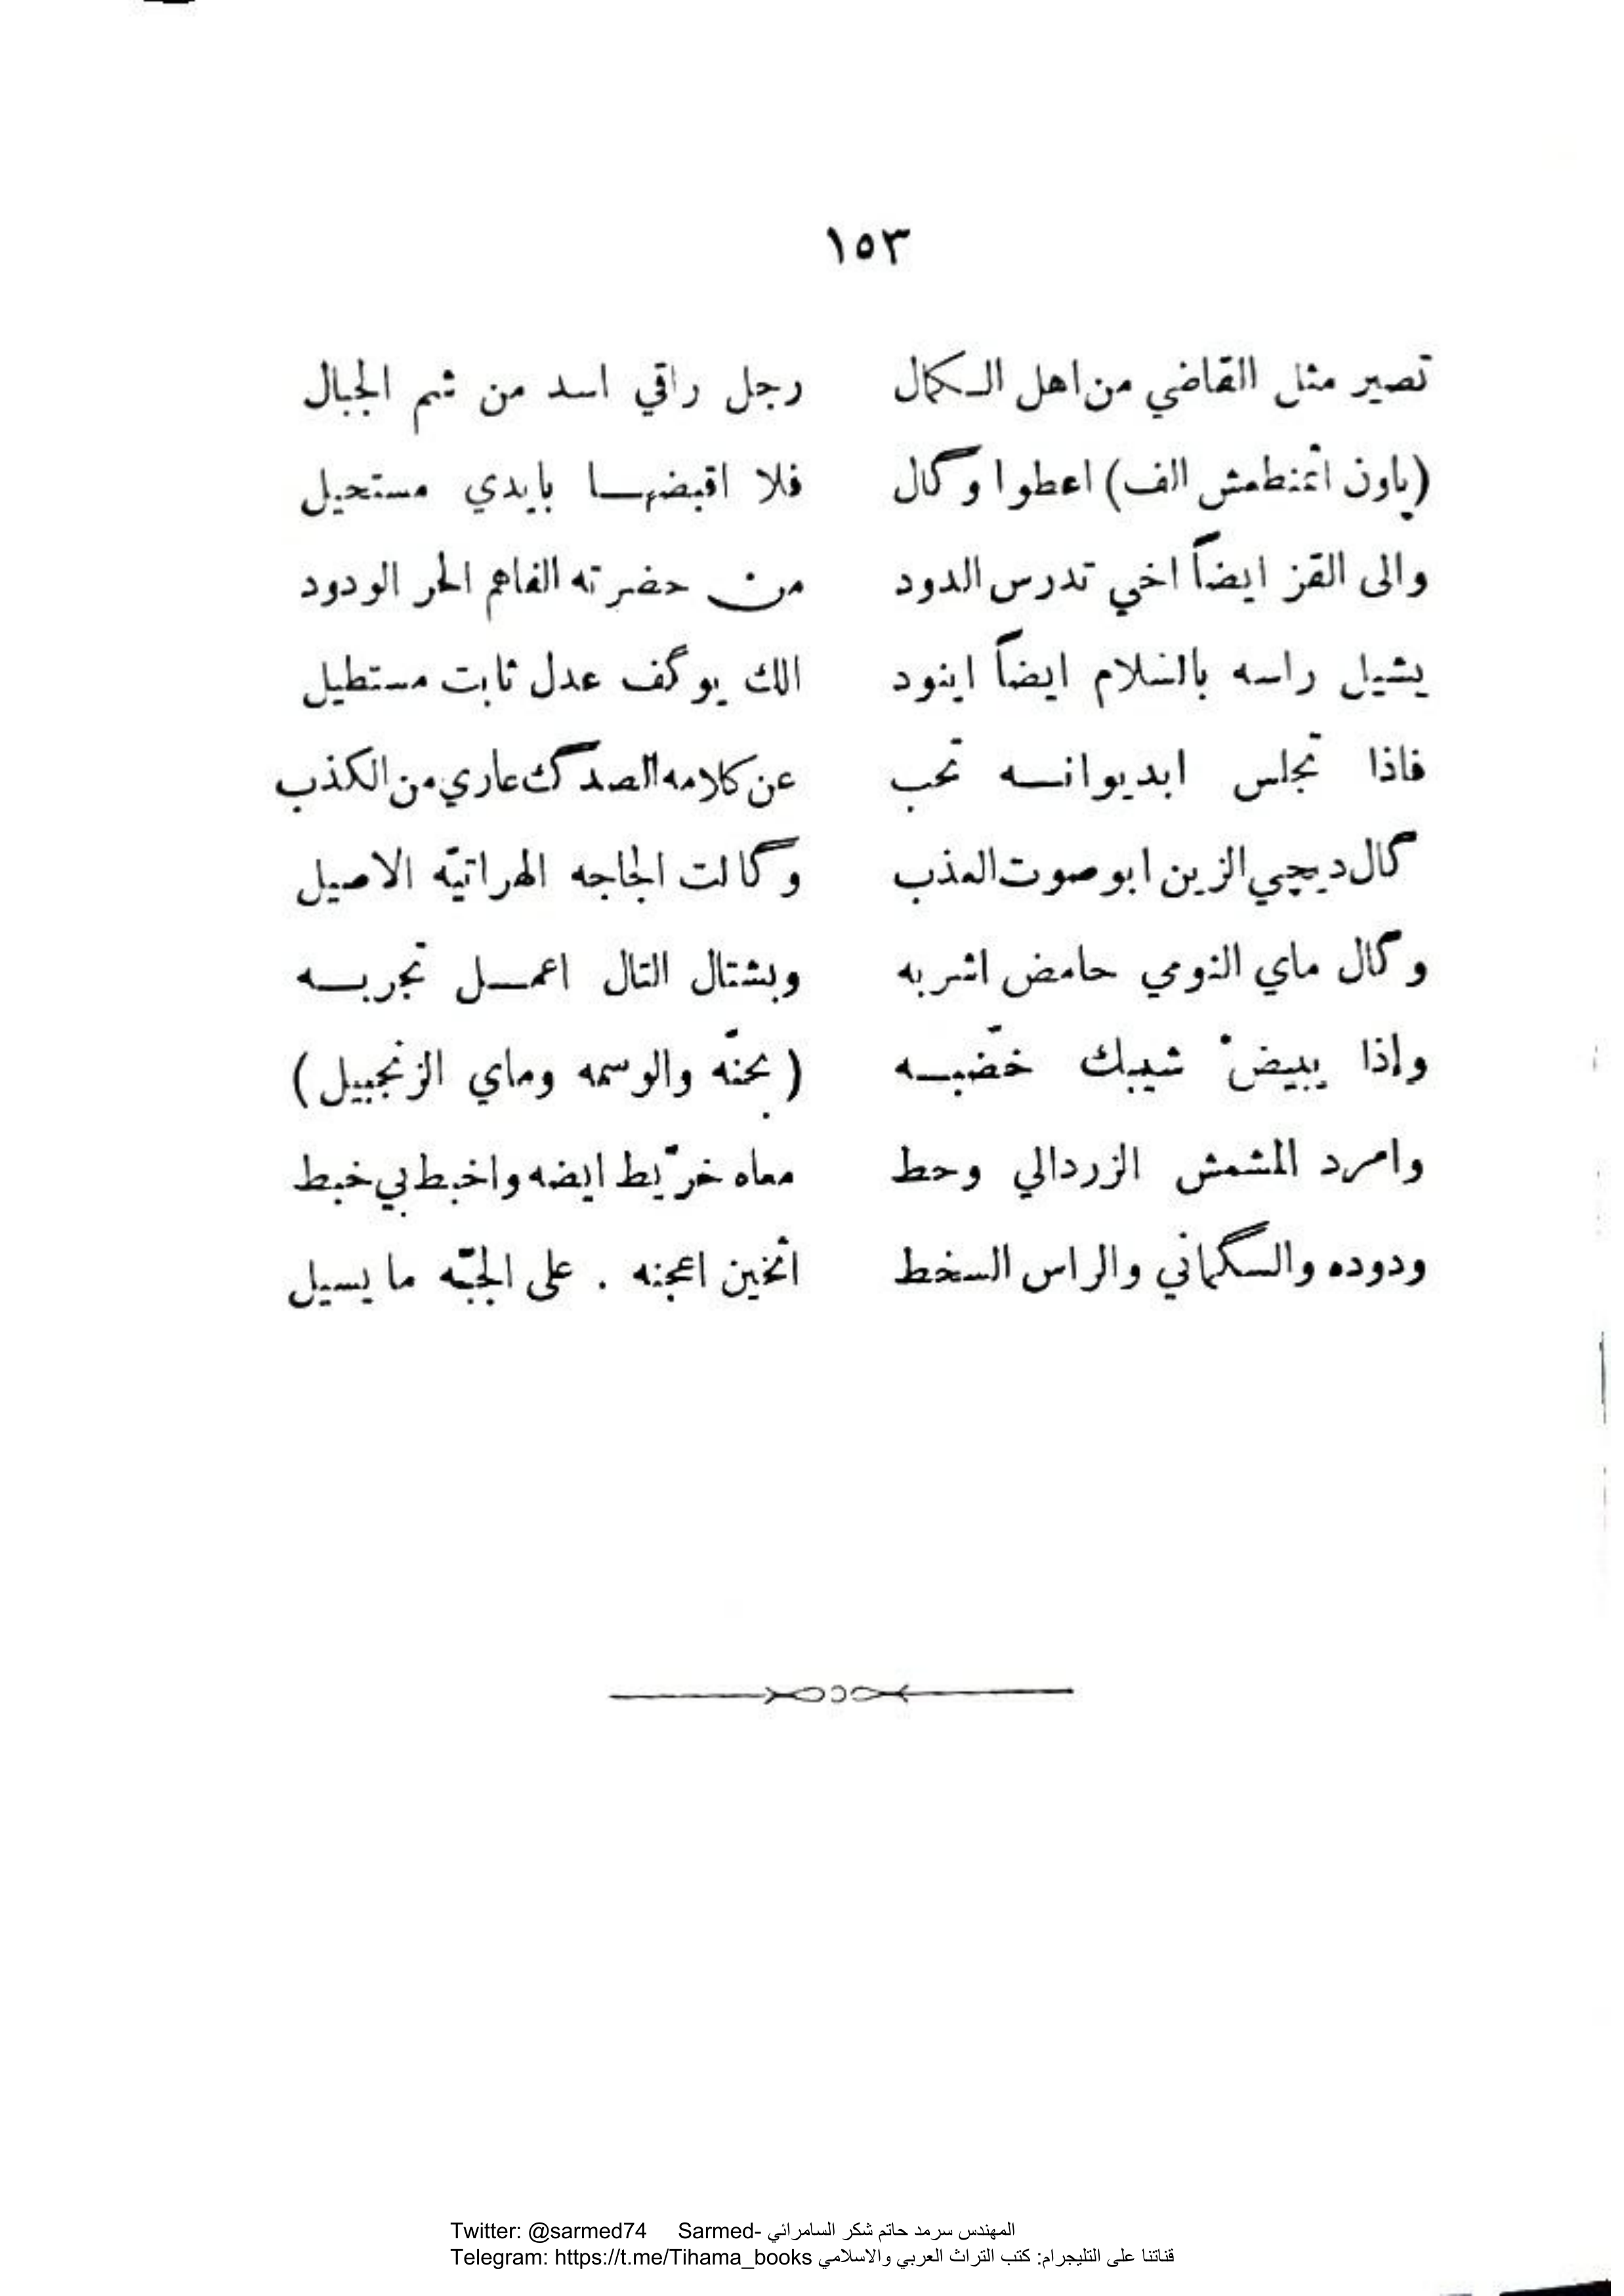 ١٥٣
تصير مثل القاضي من اهل الـكمال رجل راقي اسد من شم الجبال
(پاون اتمنطمش الف) اعطوا وگال فلا اقبضهـا بايدي مستحيل
والى القز ايضاً اخي تدرس الدود من حضرته الفاهم الحر الودود
يشيل راسه بالسلام ايضاً اينود الك يوگف عدل ثابت مستطيل
فاذا تجلس ابديوانـه تحب عن كلامه الصدگ عاري من الكذب
گال ديچي الزين ابو صوت العذب وگالت الجاجه الهراتيّه الاصيل
وگال ماي النومي حامض اشربه وبشتال التال اعمـل تجربـه
وإذا يبيضْ شيبك خضّبـه (بحنّه والوسمه وماي الزنجبيل)
وامرد المشمش الزردالي وحط معاه خرّيط ايضه واخبط بي خبط
ودوده والسگماني والراس السخط اثخين اعجنه . على الجبّه ما يسيل
Twitter: @sarmed74 Sarmed- المهندس سرمد حاتم شكر السامرائي
Telegram: https://t.me/Tihama_books قناتنا على التليجرام: كتب التراث العربي والاسلامي